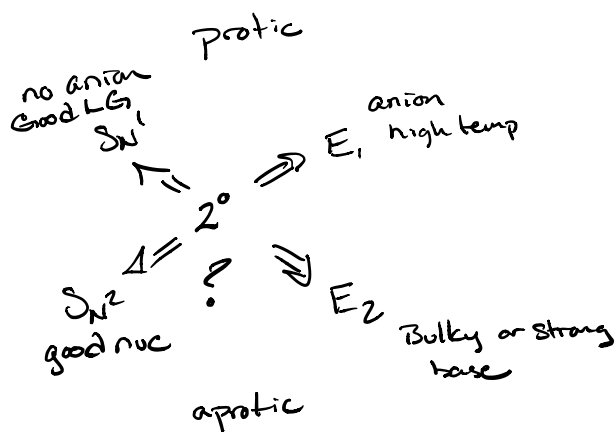 protic
no anion
Good LG
SN1
E1
anion
high temp
2°
?
SN2
good nuc
E2
Bulky or strong
base
aprotic